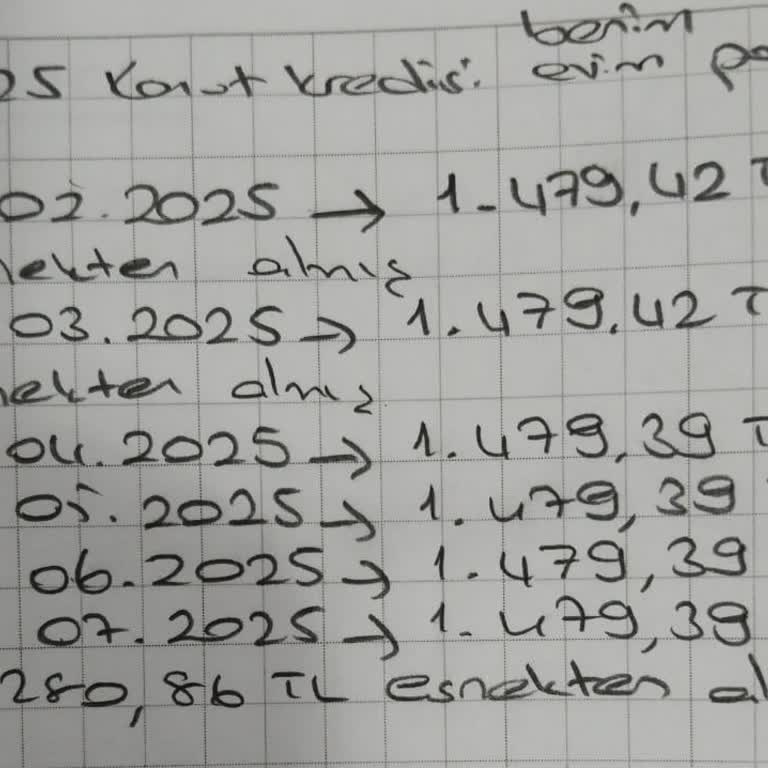 benim
25 Konut kredisi evim pa
02.2025 → 1.479,42 T
nekten almış
03.2025 → 1.479,42 T
nekten almış
04.2025 → 1.479,39 T
05.2025 → 1.479,39
06.2025 → 1.479,39
07.2025 → 1.479,39
280,86 TL esnekten al